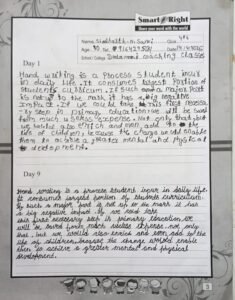 Smart Right
Share your word with the world
Name: Siddharth . Savni Class 4th
Age: 10 Tel.
School/College coaching classes
Day 1
Hand writing is a process student incus
in daily life. It consumes largest portion of
students curriculum. If such a major part
is not up to the mark it has a big negative
impact. If we could take
step in primary education we will be saved
from much expense. Not only that but
we would also enrich and even add to the
life of children because the change would enable
them to achieve a greater mental and physical
development.
Day 9
Hand writing is a process student incur in daily life.
It consumes largest portion of students curriculum.
If such a major part is not up to the mark it has
a big negative impact. If we could take
our first necessary step in primary education, we
will be saved from much expense, not only
that, but we would also enrich and even add to the
life of children, because the change would enable
them to achieve a greater mental and physical
development.